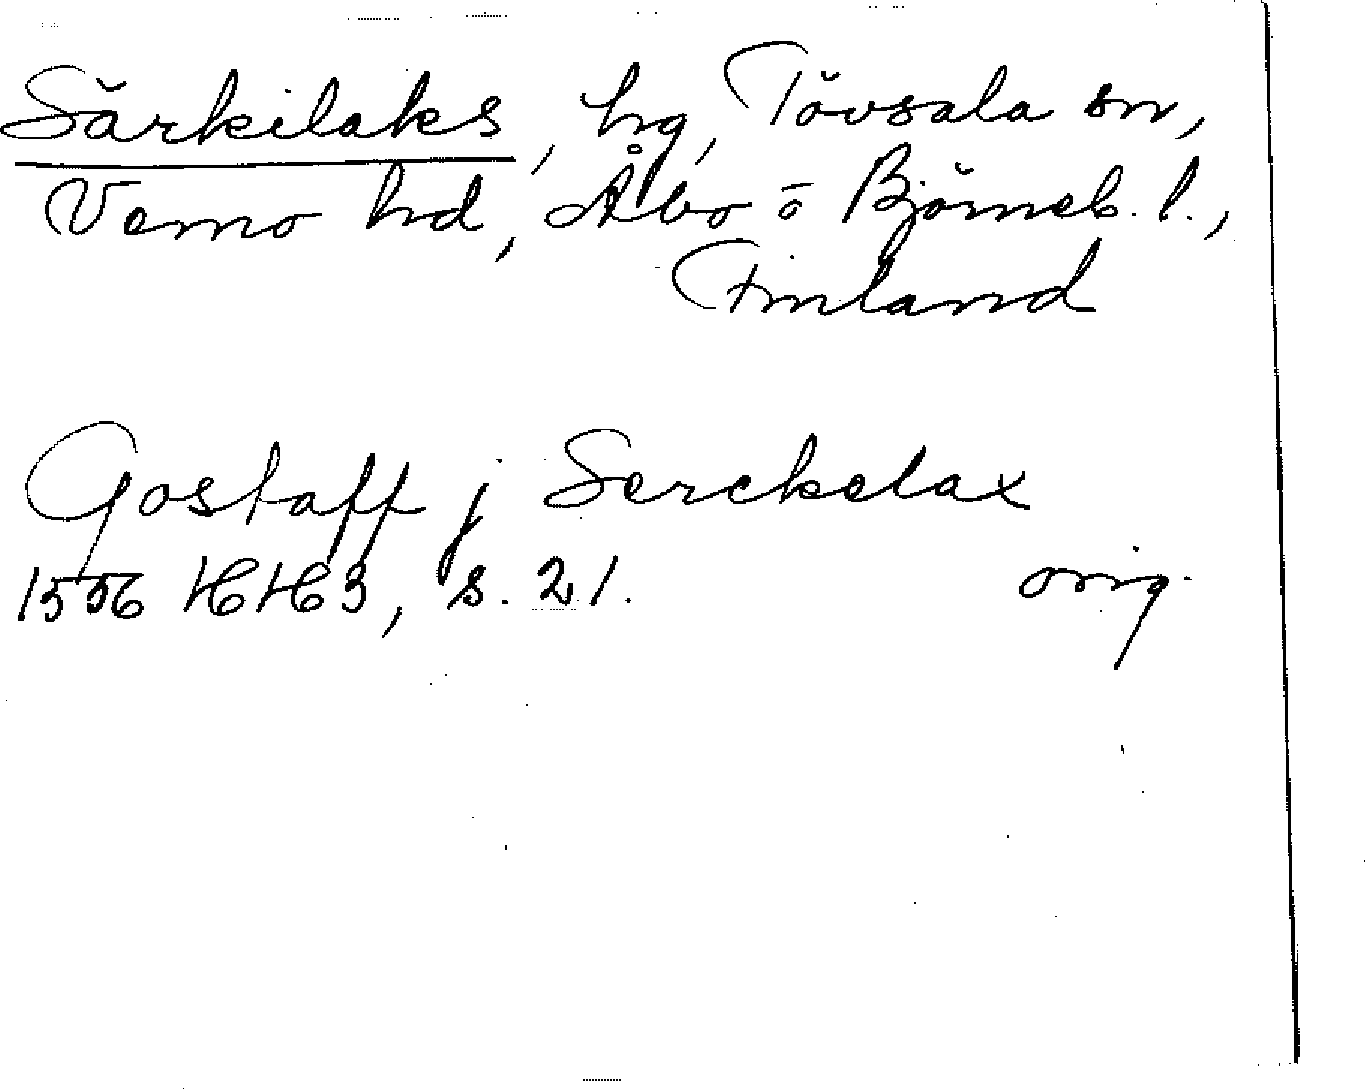 Särkilaks, hg, Tövsala sn,
Vemo hd, Åbo o Björneb. l.,
Finland
Gostaff j Serckelax
1556 HH3, s. 21.
orig.